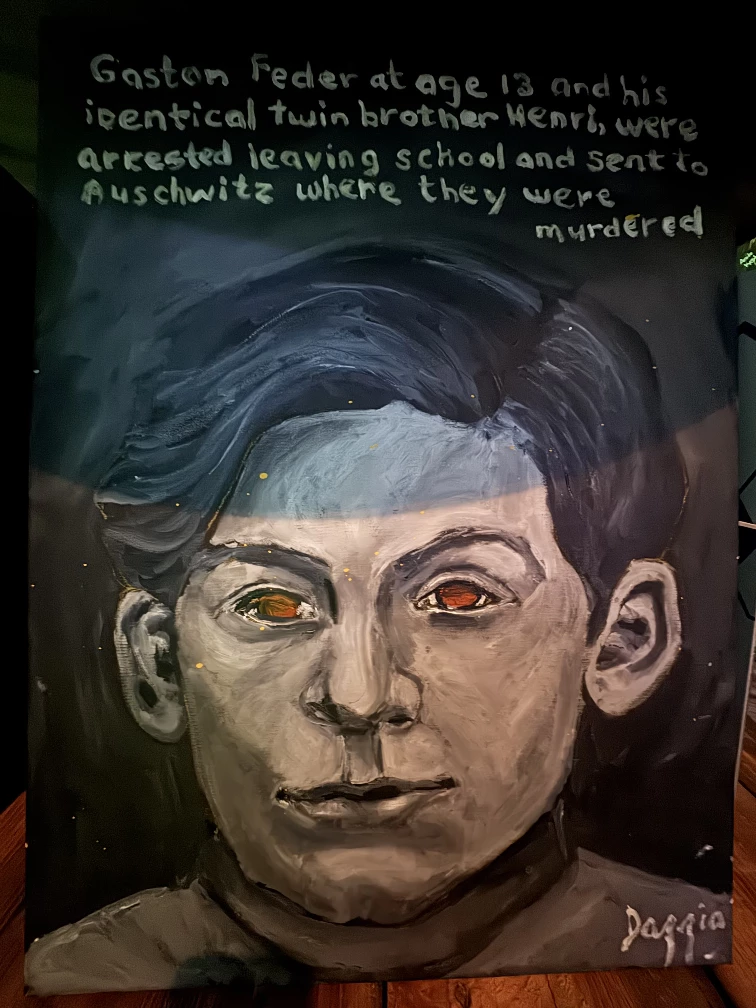 Gaston Feder at age 13 and his
identical twin brother Henri, were
arrested leaving school and sent to
Auschwitz where they were
murdered
Dazzia